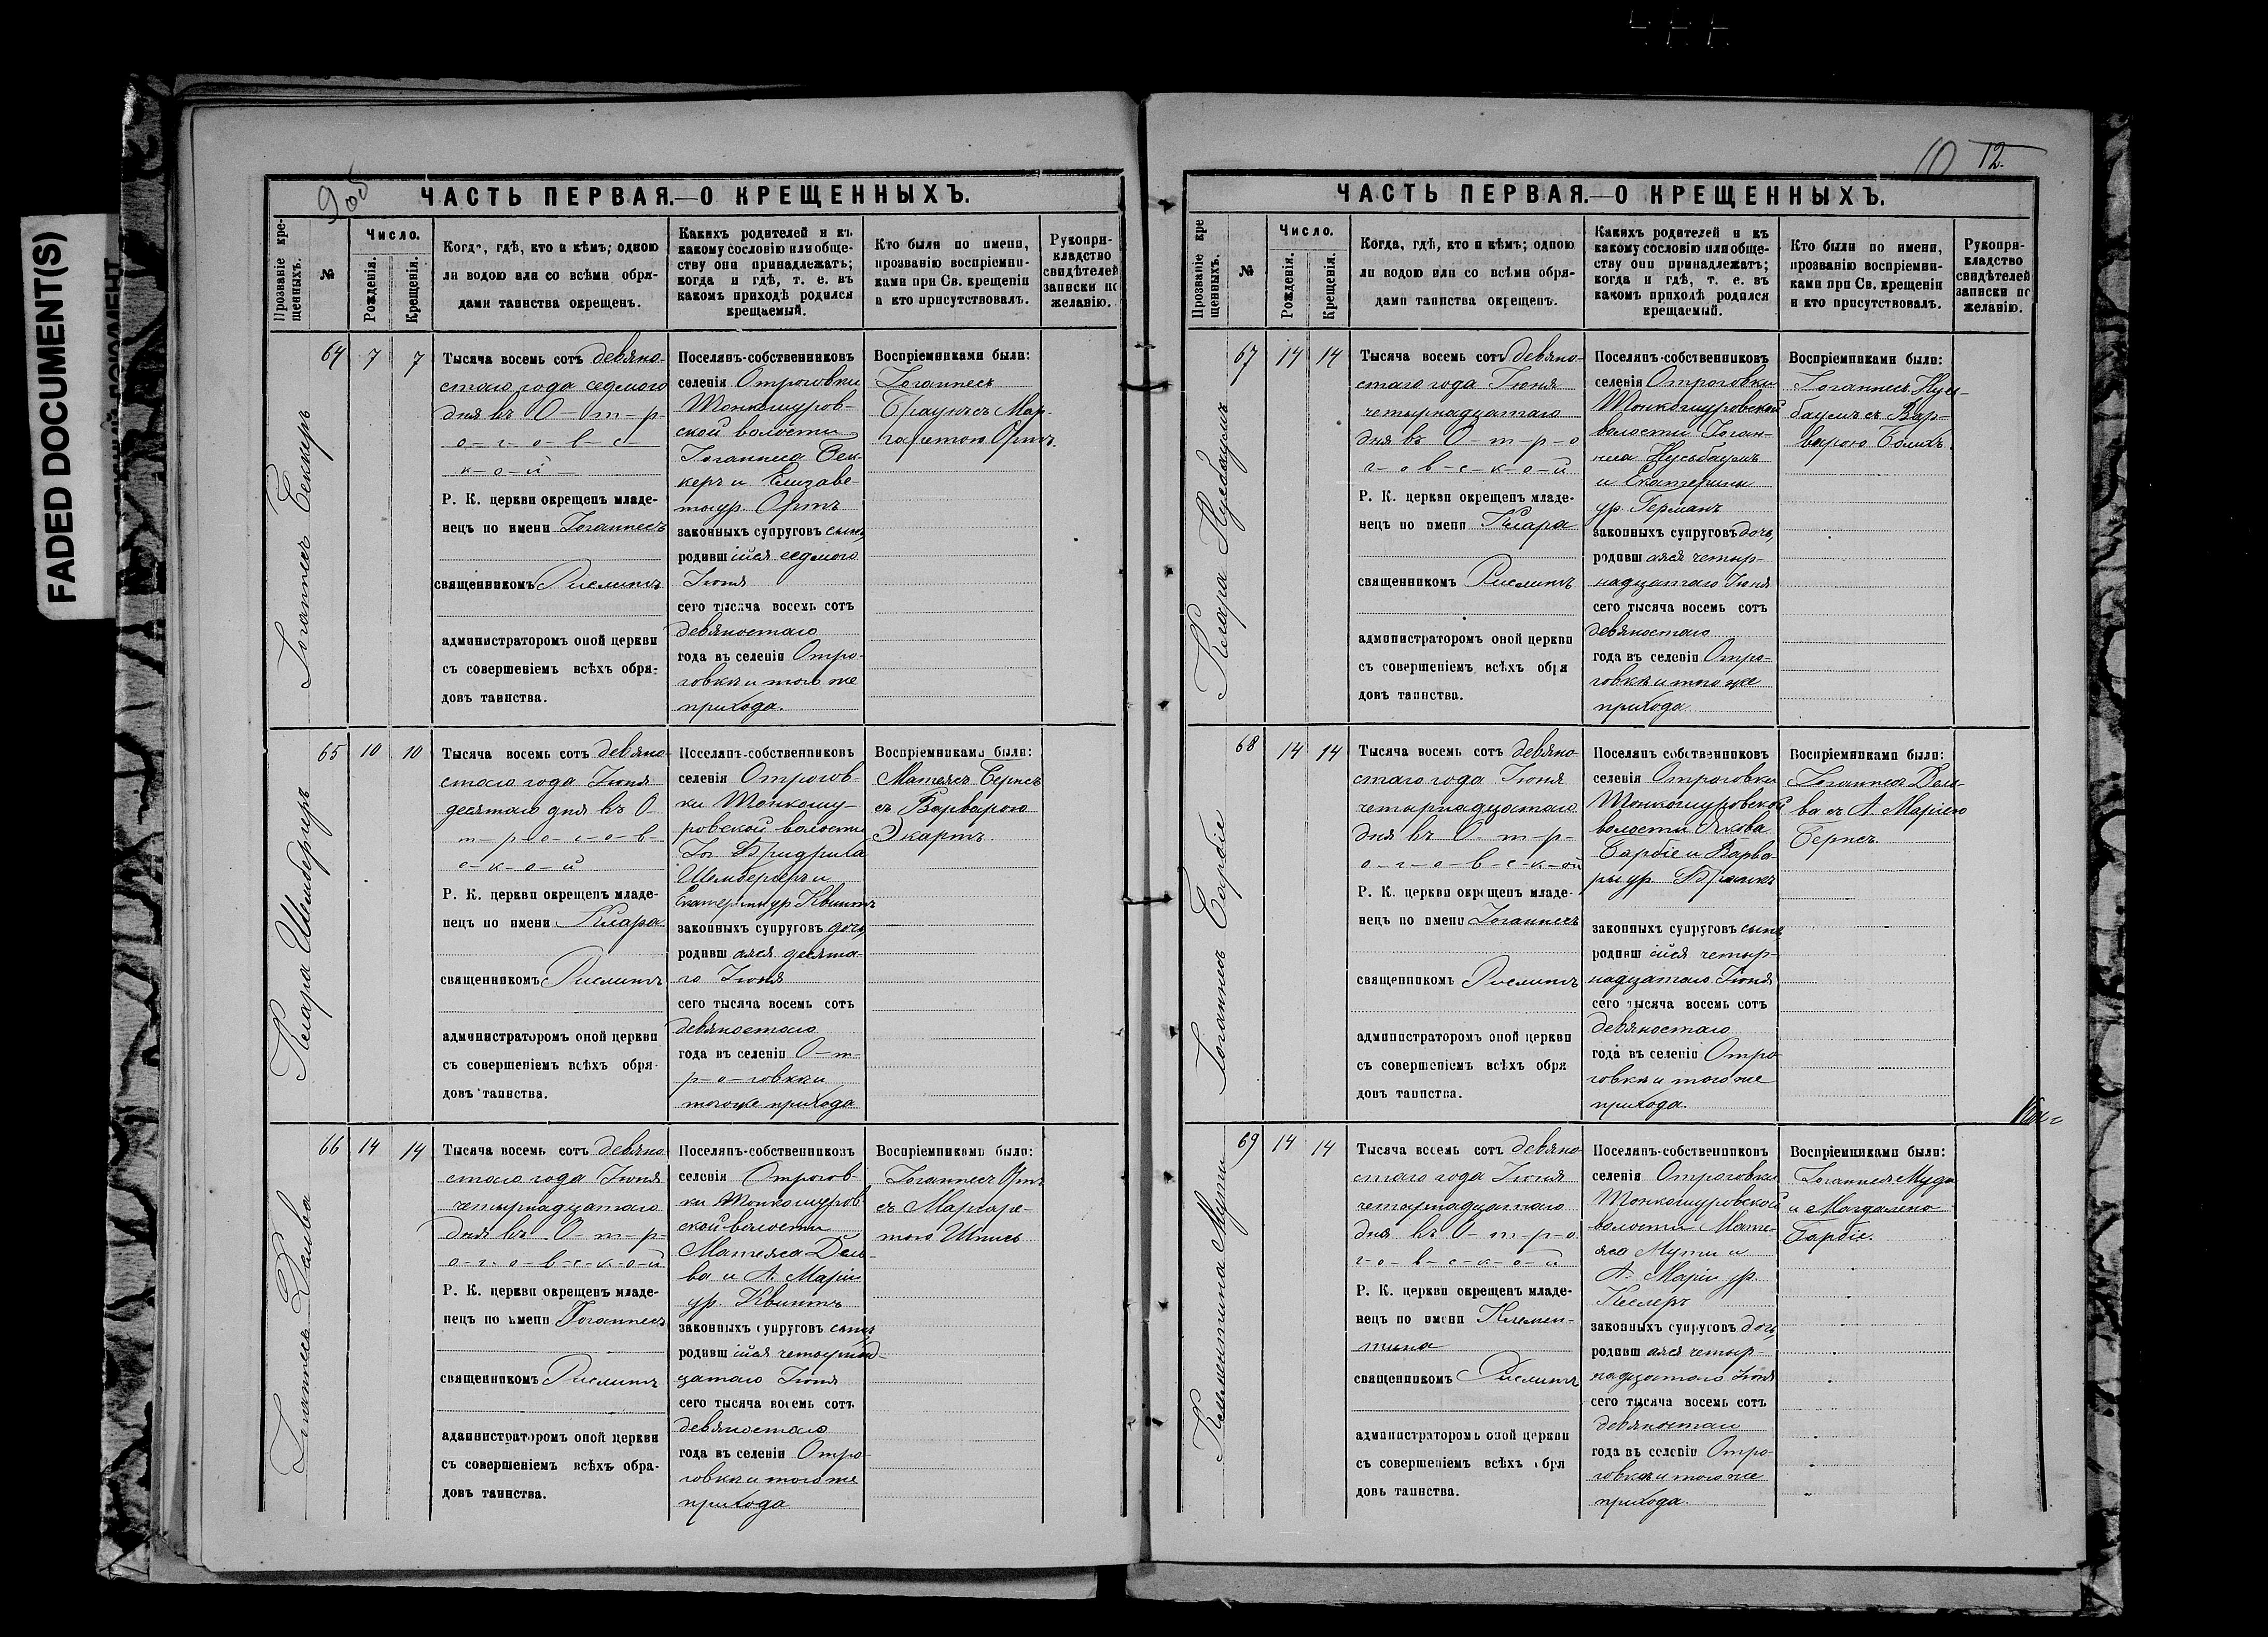 FADED DOCUMENT(S)
9 об
ЧАСТЬ ПЕРВАЯ.—О КРЕЩЕННЫХЪ.
Прозваніе кре-
щенныхъ.
№
Число.
Рожденія.
Крещенія.
Когда, гдѣ, кто и кѣмъ; одною
ли водою или со всѣми обря-
дами таинства окрещенъ.
Какихъ родителей и къ
какому сословію или обще-
ству они принадлежатъ;
когда и гдѣ, т. е. въ
какомъ приходѣ родился
крещаемый.
Кто были по имени,
прозванію воспріемни-
ками при Св. крещеніи
и кто присутствовалъ.
Рукопри-
кладство
свидѣтелей
записки по
желанію.
Іоганнесъ Беккеръ
64
7
7
Тысяча восемь сотъ девяно-
стаго года седмого
дня въ О-т-р-
о-г-о-в-с-
к-о-й
Р. К. церкви окрещенъ младе-
нецъ по имени Іоганнесъ
священникомъ Рислингъ
администраторомъ оной церкви
съ совершеніемъ всѣхъ обря-
довъ таинства.
Поселянъ-собственниковъ
селенія Отроговки
Тонкошуров-
ской волости
Іоганнеса Бек-
керъ и Елизаве-
ты ур. Ортъ
законныхъ супруговъ сынъ,
родившійся седмого
Іюня
сего тысяча восемь сотъ
девяностаго
года въ селеніи Отро-
говки и того же
прихода.
Воспріемниками были:
Іоганнесъ
Браунъ съ Мар-
гаретою Ортъ.
Клара Шемберггеръ
65
10
10
Тысяча восемь сотъ девяно-
стаго года Іюня
десятаго дня въ О-
т-р-о-г-о-в-
с-к-о-й
Р. К. церкви окрещенъ младе-
нецъ по имени Клара
священникомъ Рислингъ
администраторомъ оной церкви
съ совершеніемъ всѣхъ обря-
довъ таинства.
Поселянъ-собственниковъ
селенія Отрогов-
ки Тонкошу-
ровской волости
Іог. Фридриха
Шембергеръ и
Екатерины ур. Квинтъ
законныхъ супруговъ дочь,
родившаяся десята-
го Іюня
сего тысяча восемь сотъ
девяностаго
года въ селеніи О-т-
р-о-говки и
того же прихода
Воспріемниками были:
Матеясъ Бернсъ
съ Варварою
Экартъ.
Іоганнесъ Дельва
66
14
14
Тысяча восемь сотъ девяно
стаго года Іюня
четырнадцатаго
дня въ О-т-р-
о-г-о-в-с-к-о-й
Р. К. церкви окрещенъ младе-
нецъ по имени Іоганнесъ
священникомъ Рислингъ
администраторомъ оной церкви
съ совершеніемъ всѣхъ обря-
довъ таинства.
Поселянъ-собственниковъ
селенія Отрогов-
ки Тонкошуров
ской волости
Матеяса Дель-
ва и А. Маріи
ур. Квинтъ
законныхъ супруговъ сынъ,
родившійся четырнад-
цатаго Іюня
сего тысяча восемь сотъ
девяностаго
года въ селеніи Отро-
говки и того же
прихода
Воспріемниками были:
Іоганнесъ Ортъ
съ Маргаре-
тою Шписъ
10 12.
ЧАСТЬ ПЕРВАЯ.—О КРЕЩЕННЫХЪ.
Прозваніе кре
щенныхъ.
№
Число.
Рожденія.
Крещенія.
Когда, гдѣ, кто и кѣмъ; одною
ли водою или со всѣми обря-
дами таинства окрещенъ.
Какихъ родителей и къ
какому сословію или обще-
ству они принадлежатъ;
когда и гдѣ, т. е. въ
какомъ приходѣ родился
крещаемый.
Кто были по имени,
прозванію воспріемни-
ками при Св. крещеніи
и кто присутствовалъ.
Рукопри-
кладство
свидѣтелей
записки по
желанію.
Клара Нусбаумъ
67
14
14
Тысяча восемь сотъ девяно-
стаго года Іюня
четырнадцатаго
дня въ О-т-р-о
г-о-в-с-к-о-й
Р. К. церкви окрещенъ младе-
нецъ по имени Клара
священникомъ Рислингъ
администраторомъ оной церкви
съ совершеніемъ всѣхъ обря
довъ таинства.
Поселянъ-собственниковъ
селенія Отроговки
Тонкошуровской
волости Іоган-
неса Нусбаумъ
и Екатерины
ур. Германъ
законныхъ супруговъ дочь,
родившаяся четыр-
надцатаго Іюня
сего тысяча восемь сотъ
девяностаго
года въ селеніи Отро-
говки и того же
прихода
Воспріемниками были:
Іоганнесъ Нус-
баумъ съ Вар-
варою Болихъ.
Іоганнесъ Барбіе
68
14
14
Тысяча восемь сотъ девяно
стаго года Іюня
четырнадцатаго
дня въ О-т-р-
о-г-о-в-с-к-ой
Р. К. церкви окрещенъ младе-
нецъ по имени Іоганнесъ
священникомъ Рислингъ
администраторомъ оной церкви
съ совершеніемъ всѣхъ обря
довъ таинства.
Поселянъ собственниковъ
селенія Отроговки
Тонкошуровской
волости Якова
Барбіе и Варва-
ры ур. Франкъ
законныхъ супруговъ сынъ,
родившійся четыр-
надцатаго Іюня
сего тысяча восемь сотъ
девяностаго
года въ селеніи Отро
говки и того же
прихода.
Воспріемниками были:
Іоганнесъ Дель-
ва съ А. Маріею
Бернсъ.
Клементина Мутц
69
14
14
Тысяча восемь сотъ девяно
стаго года Іюня
четырнадцатаго
дня въ О-т-р-о
г-о-в-с-к-о-й
Р. К. церкви окрещенъ младе-
нецъ по имени Клемен-
тина
священникомъ Рислингъ
администраторомъ оной церкви
съ совершеніемъ всѣхъ обря
довъ таинства.
Поселянъ-собственниковъ
селенія Отроговки
Тонкошуровской
волости Мате-
яса Мутц и
А. Маріи ур.
Кеслеръ
законныхъ супруговъ дочь,
родившаяся четыр
надцатаго Іюня
сего тысяча восемь сотъ
девяностаго
года въ селеніи Отро-
говки и того же
прихода.
Воспріемниками были:
Іоганнесъ
и Магдалена
Барбіе.